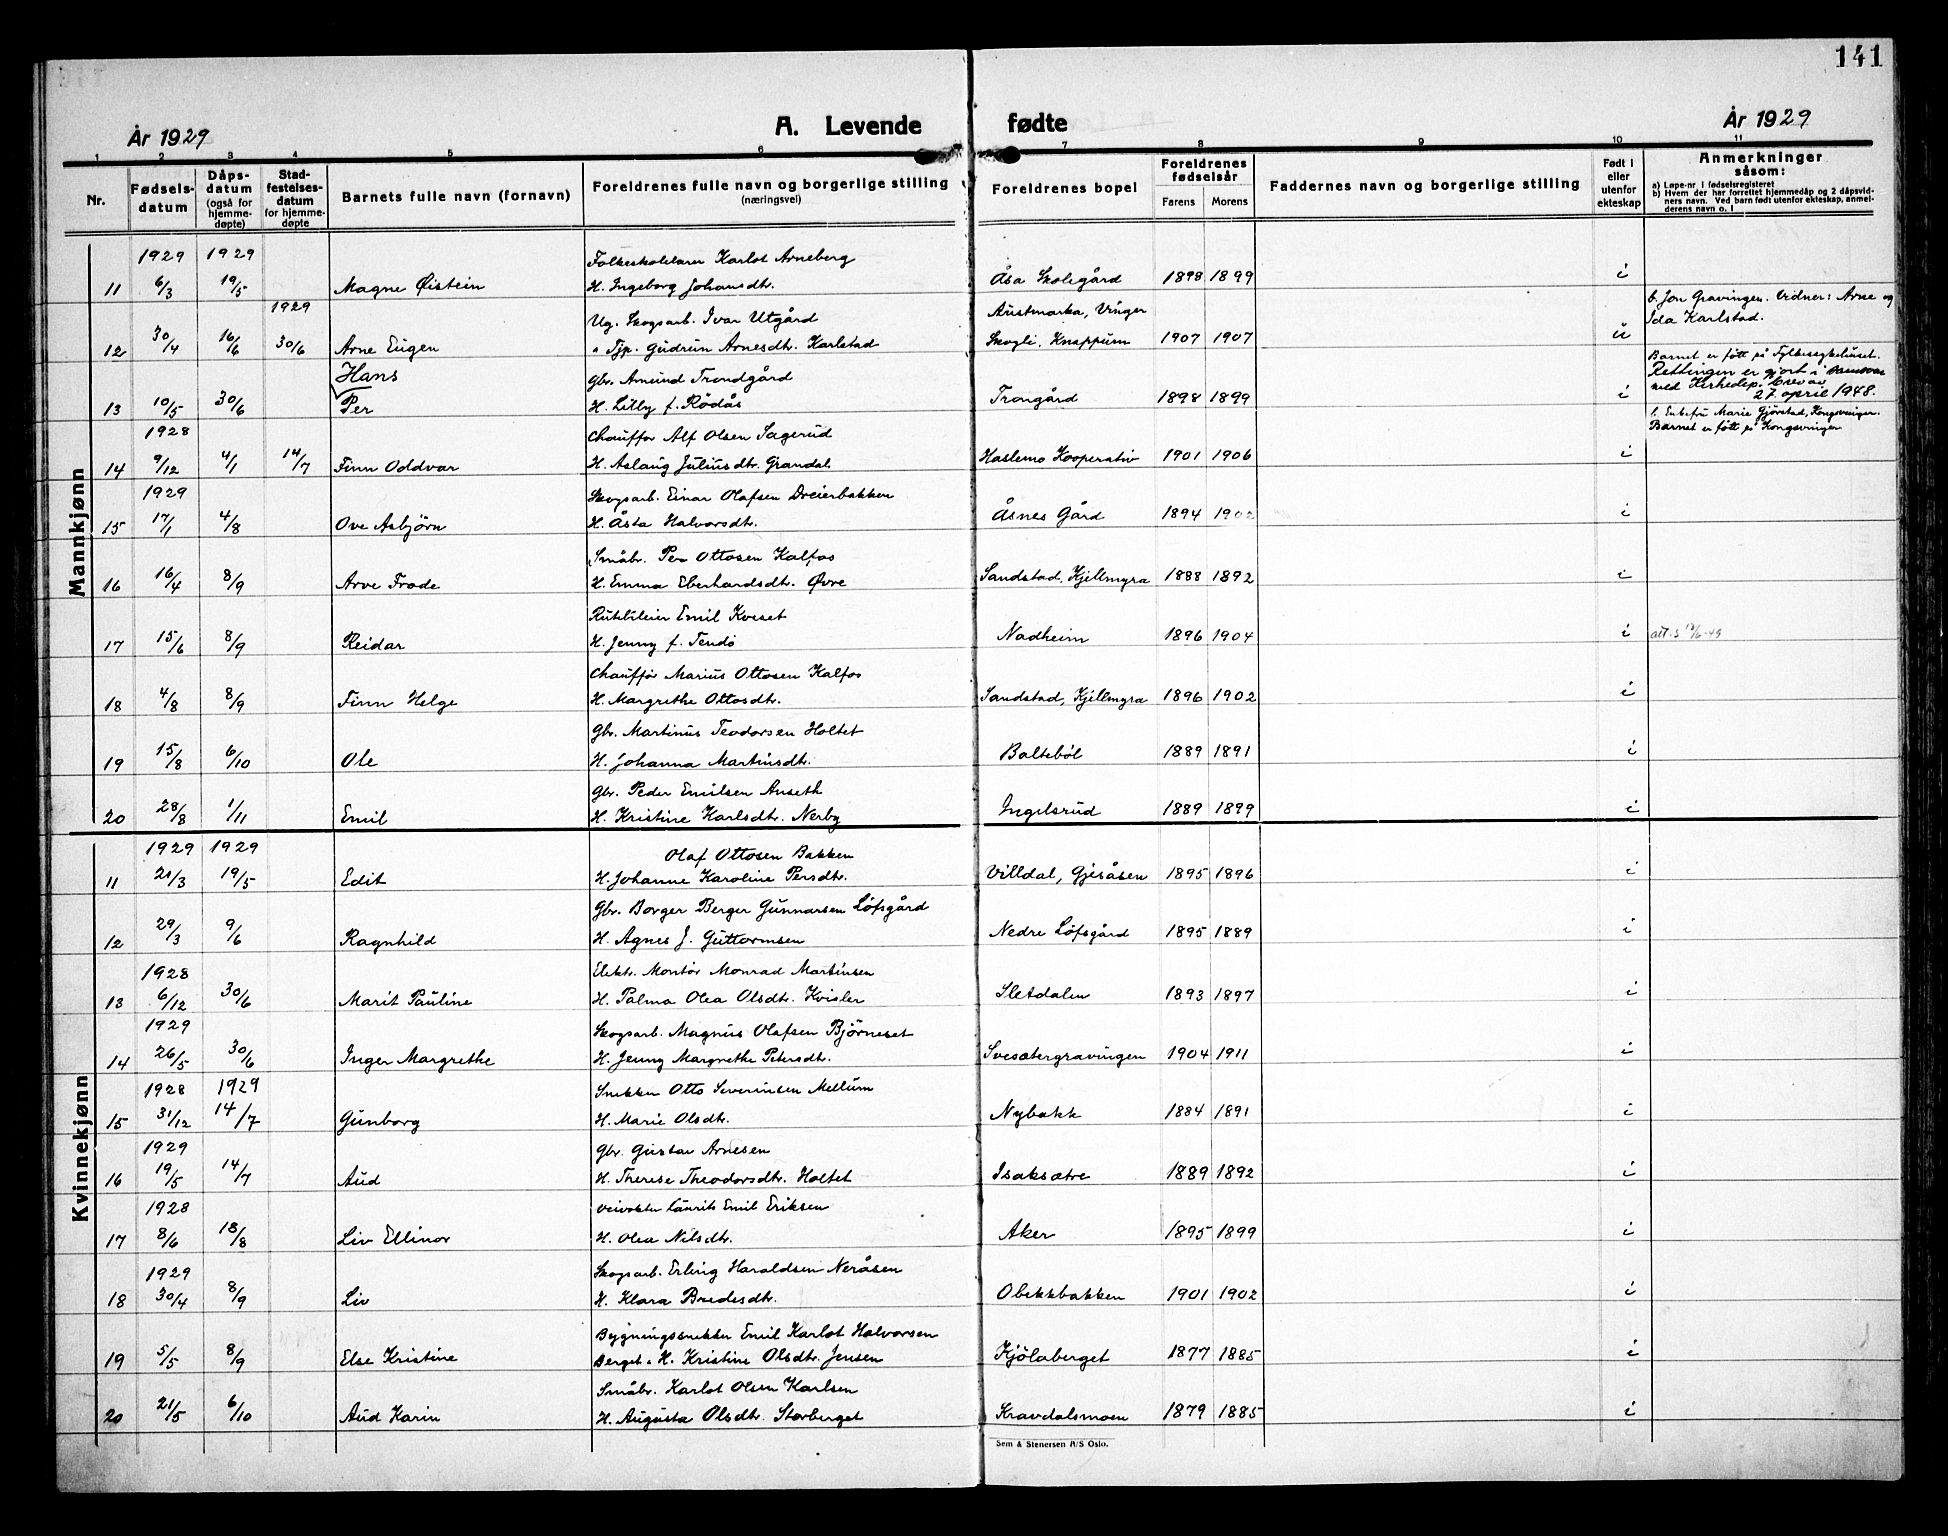 141
År 1929 A. Levende fødte År 1929
1 2 3 4 5 6 7 8 9 10 11
Nr. Fødsels-datum Dåps-datum (også for hjemme-døpte) Stad-festelses-datum for hjemme-døpte Barnets fulle navn (fornavn) Foreldrenes fulle navn og borgerlige stilling (næringsvei) Foreldrenes bopel Foreldrenes fødselsår Farens Morens Faddernes navn og borgerlige stilling Født i eller utenfor ekteskap Anmerkninger såsom:
a) Løpe-nr i fødselsregisteret
b) Hvem der har forrettet hjemmedåp og 2 dåpsvid-ners navn. Ved barn født utenfor ekteskap, anmel-derens navn o. l
Mannkjønn
1929 1929 Folkeskolelærer Karlot Arneberg
11 6/3 19/5 Magne Øistein H. Ingeborg Johansdtr. Åsa Skolegård 1898 1899 i
1929 Ug. Skogsarb. Ivar Utgård Austmarka, Vinger b. Jon Gravingen. Vidner: Arne og
Ida Karlstad.
12 30/4 16/6 30/6 Arne Eugen " Tjp. Gudrun Arnesdtr. Karlstad Skogli, Knappum 1907 1907 u
Hans Gbr. Amund Trondgård Barnet er født på Fylkessykehuset.
Rettingen er gjort i samsvar
med Kirkedep. brev av
27. april 1948.
13 10/5 30/6 Per H. Lilly f. Rödås Trongård 1898 1899 i
1928 Chauffør Alf Olsen Sagerud Marie Gjörstad, Kongsvinger.
Barnet er født på Kongsvinger
14 9/12 4/1 14/7 Finn Oddvar H. Aslaug Juliusdtr. Grandal Haslemo Kooperativ 1901 1906 i
1929 Skogsarb. Einar Olafsen Dreierbakken
15 17/1 4/8 Ove Asbjørn H. Åsta Halvorsdtr. Åsnes Gård 1894 1902 i
Småbr. Per Ottosen Kalfos
16 16/4 8/9 Arve Frode H. Emma Eberhardsdtr. Øvre Sandstad, Kjellmyra 1888 1892 i
Rutebileier Emil Kveset
17 15/6 8/9 Reidar H. Jenny f. Tendö Nadheim 1896 1904 i
Chauffør Marius Ottosen Kalfos
18 4/8 8/9 Finn Helge H. Margrethe Ottosdtr. Sandstad, Kjellmyra 1896 1902 i
Gbr. Martinus Teodorsen Holtet
19 15/8 6/10 Ole H. Johanna Martinsdtr. Baltebøl 1889 1891 i
Gbr. Peder Emilsen Anseth
20 28/8 1/11 Emil H. Kristine Karlsdtr. Nerby Ingelsrud 1889 1899 i
Kvinnekjønn
1929 1929 Olaf Ottosen Bakken
11 21/3 19/5 Edit H. Johanne Karoline Persdtr. Villdal, Gjesåsen 1895 1896 i
Gbr. Borger Berger Gunnarsen Löfsgård
12 29/3 9/6 Ragnhild H. Agnes J. Guttormsen Nedre Löfsgård 1895 1889 i
1928 Elektr. Montör Monrad Martinsen
13 6/12 30/6 Marit Pauline H. Palma Olea Olsdtr. Kvisler Sletdalen 1893 1897 i
1929 Skogsarb. Magnus Olafsen Björneset
14 26/5 30/6 Inger Margrethe H. Jenny Margrethe Petersdtr. Svesætergravingen 1904 1911 i
1928 1929 Snekker Otto Severinsen Mellum
15 31/12 14/7 Gunborg H. Marie Olsdtr. Nybakk 1884 1891 i
1929 Gbr. Gustav Arnesen
16 19/5 14/7 Aud H. Therese Theodorsdtr. Holtet Isaksætre 1889 1892 i
1928 Veivokter Laurits Emil Eriksen
17 8/6 18/8 Liv Ellinor H. Olea Nilsdtr. Aker 1895 1899 i
1929 Skogsarb. Erling Haraldsen Neråsen
18 30/4 8/9 Liv H. Klara Bredesdtr. Obekkbakken 1901 1902 i
Bygningssnekker Emil Karlot Halvorsen
19 5/5 8/9 Else Kristine Berget " H. Kristine Olsdtr. Jensen Kjölaberget 1877 1885 i
Småbr. Karlot Olsen Karlsen
20 21/5 6/10 Aud Karin H. Augusta Olsdtr. Storberget Kravdalsmoen 1879 1885 i
Sem & Stenersen A/S Oslo.